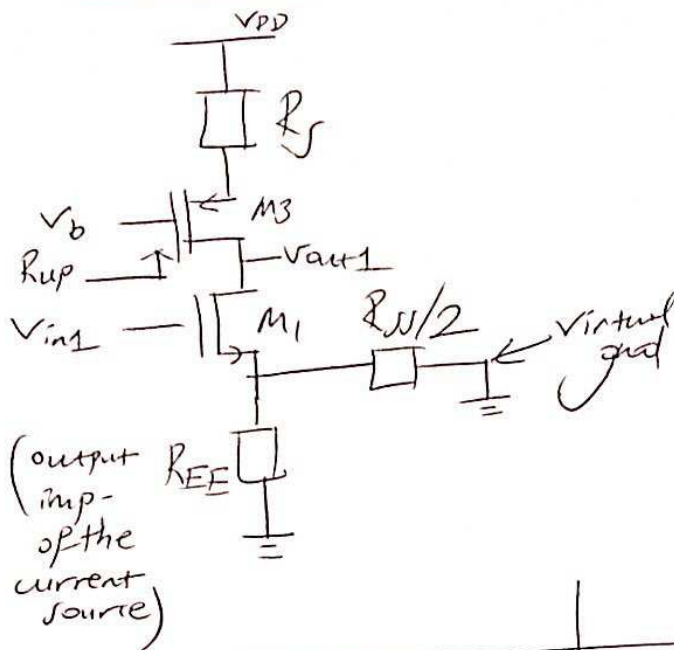 VDD
RS
Vb
M3
Rup
Vout1
Vin1
M1
RSS/2
Virtual
gnd
(output
imp-
of the
current
source)
REE